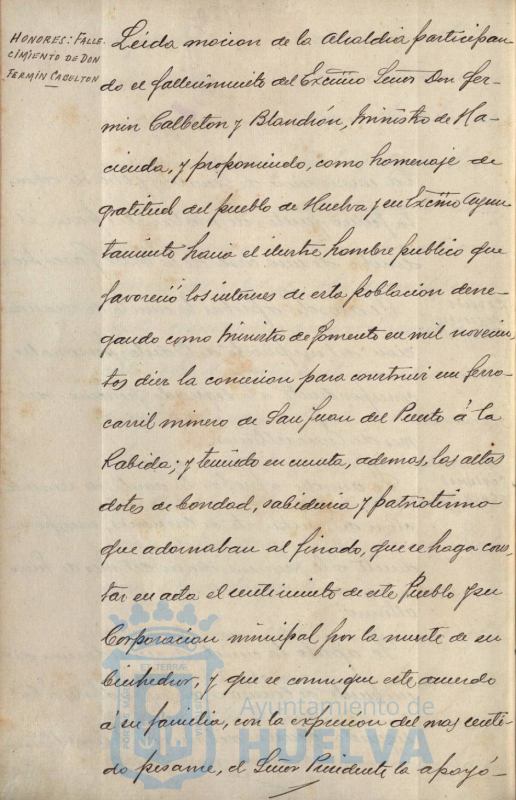 HONORES: FALLE-
CIMIENTO DE DON
FERMIN CABELTON
Leida mocion de la Alcaldia participan-
do el fallecimiento del Excmo Señor Don Fer-
min Calbeton y Blanchón, Ministro de Ha-
cienda, y proponiendo, como homenaje de
gratitud del pueblo de Huelva y su Excmo Ayun-
tamiento hacia el ilustre hombre publico que
favoreció los intereses de esta poblacion dene-
gando como Ministro de Fomento en mil novecien-
tos diez la concesion para construir un ferro-
carril minero de San Juan del Puerto á la
Rabida; y teniendo en cuenta, ademas, las altas
dotes de bondad, sabiduria y patriotismo
que adornaban al finado, que se haga cons-
tar en acta el sentimiento de este Pueblo y su
Corporacion municipal por la muerte de su
bienhechor, y que se comunique este acuerdo
á su familia, con la expresion del mas senti-
do pesame, el Señor Presidente la apoyó-
Ayuntamiento de
HUELVA